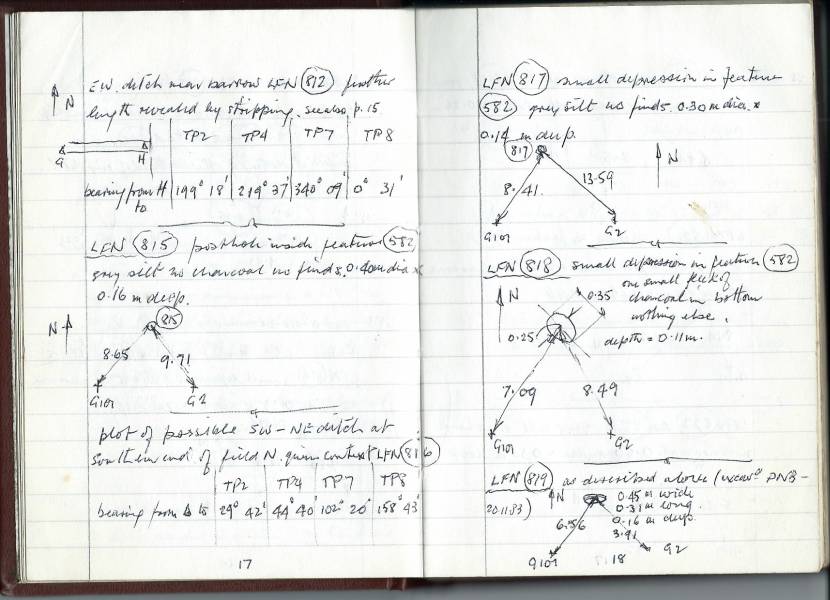 EW. ditch near barrow LFN 812 further
N
length revealed by stripping. see also p. 15.
TP2 TP4 TP7 TP8
G H
bearing from H 199° 18' 219° 37' 340° 09' 0° 31'
to
LFN 815 posthole inside feature 582
grey silt no charcoal no finds. 0.40m dia x
0.16 m deep.
N 815
8.65 9.71
G101 G2
plot of possible SW-NE ditch at
southern end of field N. given context LFN 816
TP2 TP4 TP7 TP8
bearing from Δ to 29° 42' 44° 40' 102° 20' 158° 43'
17
LFN 817 small depression in feature
582 grey silt no finds. 0.30 m dia. x
0.14 m deep.
817 N
8.41. 13.59
G101 G2
LFN 818 small depression in feature 582
one small fleck of
N 0.35 charcoal in bottom
nothing else.
0.25 depth = 0.11m.
7.09 8.49
G101 G2
LFN 819 as described above (excav'd PNB-
20.11.83) N 0.45 m wide
0.31 m long.
6.56 0.16 m deep.
3.91
G101 G2
18